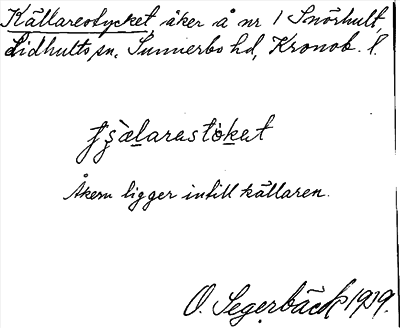 Källarestycket, åker å nr 1 Snörhult,
Lidhults sn, Sunnerbo hd, Kronob. l.
Åkern ligger intill källaren.
O. Segerbäck 1939.